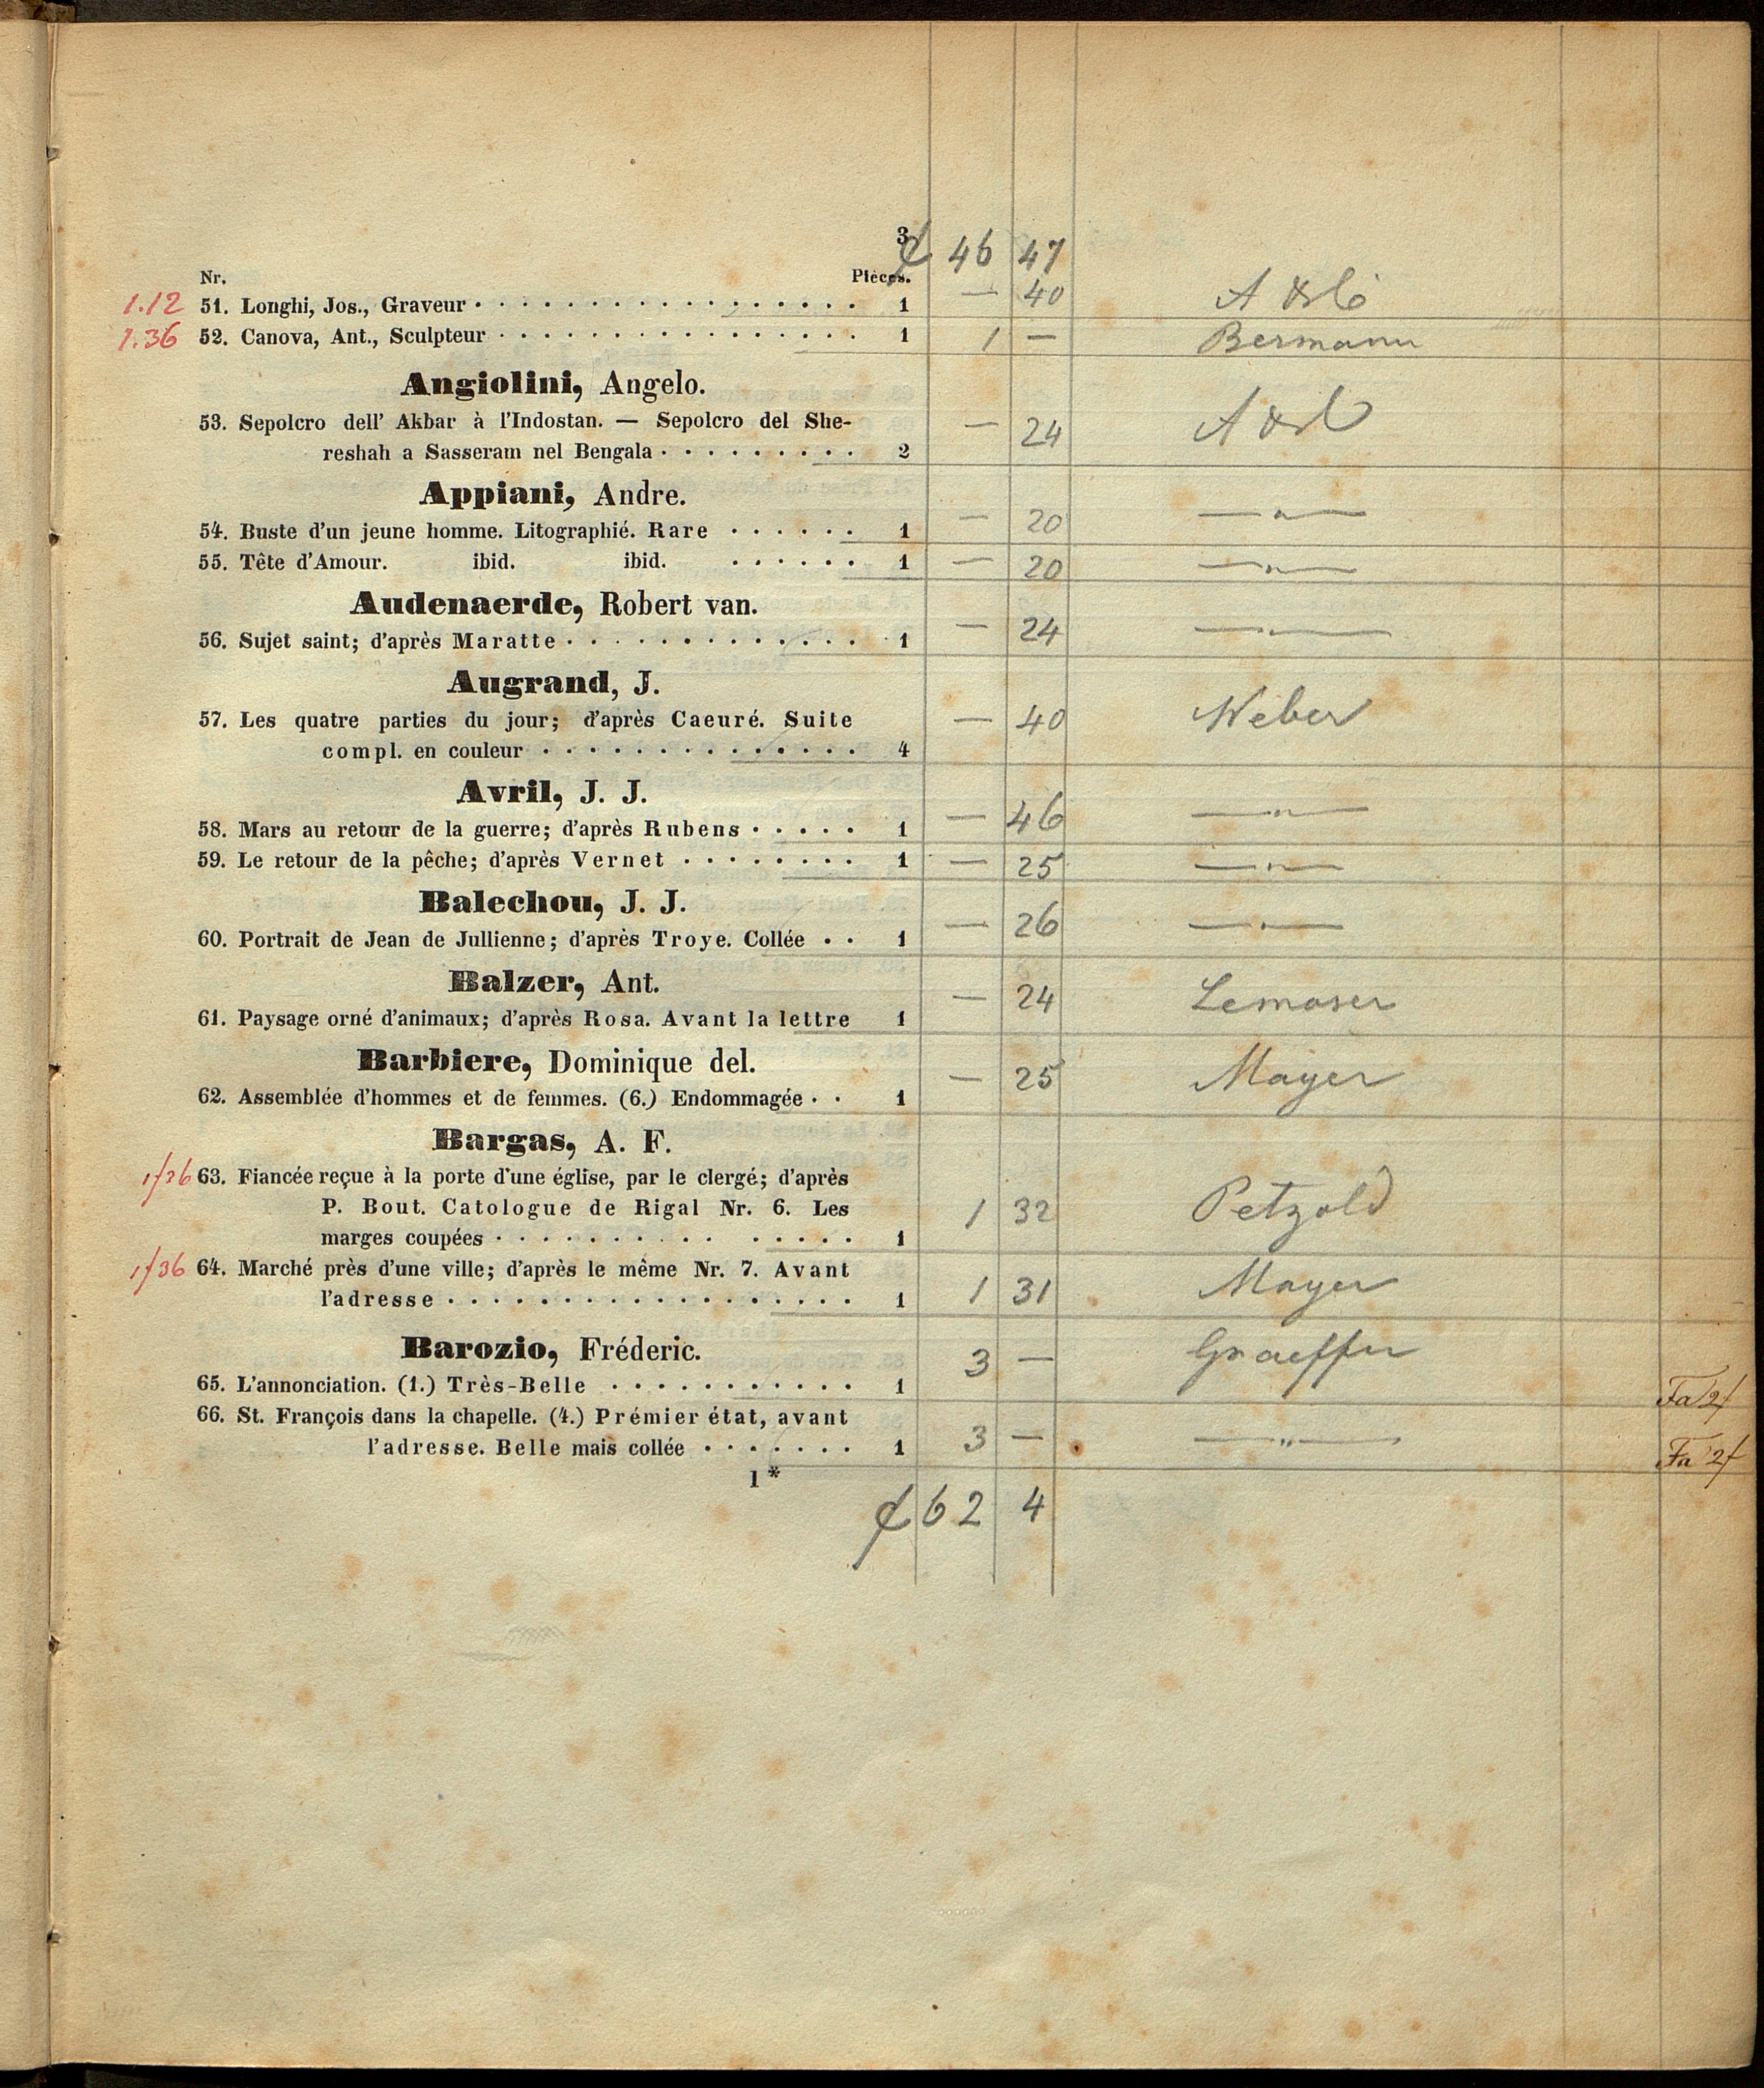 3
46 47
Nr. Pièces.
1.12 51. Longhi, Jos., Graveur . . . . . . . . . . . . . . . . . 1 — 40
1.36 52. Canova, Ant., Sculpteur . . . . . . . . . . . . . . . . 1 1 — Bermann
Angiolini, Angelo.
53. Sepolcro dell' Akbar à l'Indostan. — Sepolcro del She- — 24
reshah a Sasseram nel Bengala . . . . . . . . . 2
Appiani, Andre.
54. Buste d'un jeune homme. Litographié. Rare . . . . . . 1 — 20 —〃—
55. Tête d'Amour. ibid. ibid. . . . . . . 1 — 20 —〃—
Audenaerde, Robert van.
56. Sujet saint; d'après Maratte . . . . . . . . . . . . . 1 — 24 —〃—
Augrand, J.
57. Les quatre parties du jour; d'après Caeuré. Suite — 40 Weber
compl. en couleur . . . . . . . . . . . . . . 4
Avril, J. J.
58. Mars au retour de la guerre; d'après Rubens . . . . . 1 — 46 —〃—
59. Le retour de la pêche; d'après Vernet . . . . . . . . 1 — 25 —〃—
Balechou, J. J.
60. Portrait de Jean de Jullienne; d'après Troye. Collée . . 1 — 26 —〃—
Balzer, Ant.
61. Paysage orné d'animaux; d'après Rosa. Avant la lettre 1 — 24
Barbiere, Dominique del.
62. Assemblée d'hommes et de femmes. (6.) Endommagée . . 1 — 25 Mayer
Bargas, A. F.
1/36 63. Fiancée reçue à la porte d'une église, par le clergé; d'après
P. Bout. Catologue de Rigal Nr. 6. Les 1 32 Petzold
marges coupées . . . . . . . . . . . . . . . 1
1/36 64. Marché près d'une ville; d'après le même Nr. 7. Avant
l'adresse . . . . . . . . . . . . . . . . . . 1 1 31 Mayer
Barozio, Fréderic.
65. L'annonciation. (1.) Très-Belle . . . . . . . . . . . 1 3 — Graeffer Fa 2f
66. St. François dans la chapelle. (4.) Prémier état, avant
l'adresse. Belle mais collée . . . . . . . 1 3 — —〃— Fa 2f
1*
62 4